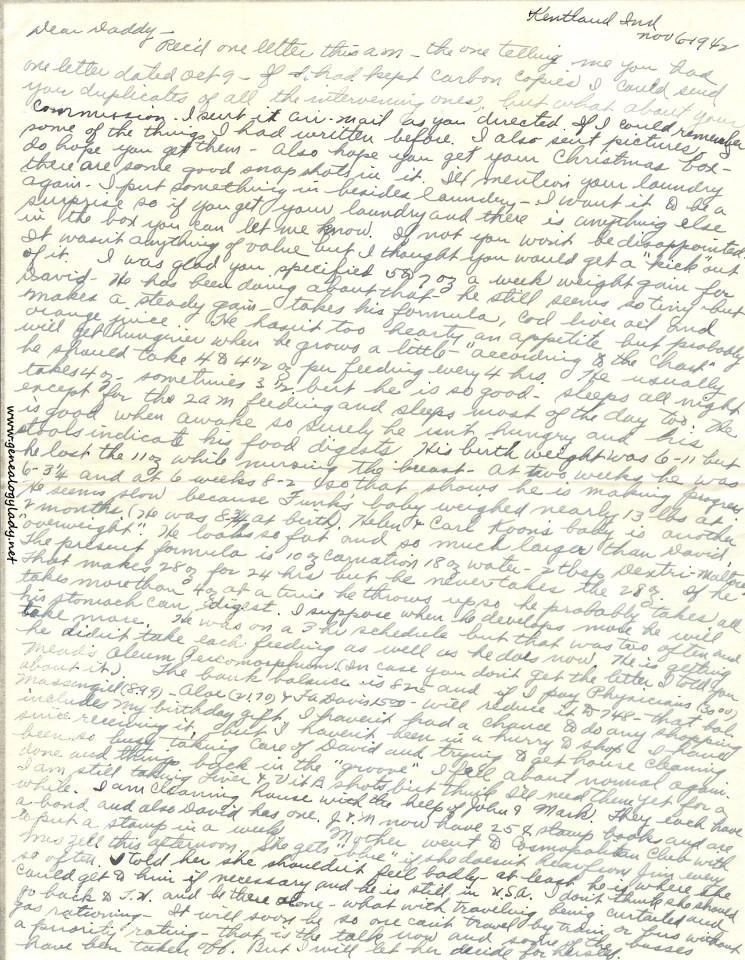 Kentland Ind
Nov 6 1942
Dear Daddy -
Rec'd one letter this am - the one telling me you had
one letter dated Oct 9 - If I had kept carbon copies I could send
you duplicates of all the intervening ones, but what about your
commission. I sent it air-mail as you directed. If I could remember
some of the things I had written before. I also sent pictures, I
do hope you get them - Also hope you get your Christmas box -
there are some good snapshots in it. I'll mention your laundry
again - I put something in besides laundry - I want it to be a
surprise so if you get your laundry and there is anything else
in the box you can let me know. If not you won't be disappointed.
It wasn't anything of value but I thought you would get a "kick" out
of it. I was glad you specified 5 to 7 oz a week weight gain for
David - He has been doing about that - he still seems so tiny - but
makes a steady gain - takes his formula, cod liver oil and
orange juice. He hasn't too hearty an appetite but probably
will get hungrier when he grows a little - "according to the chart"
he should take 4 to 4 1/2 oz per feeding every 4 hrs. He usually
takes 4 oz - sometimes 3 1/2 but he is so good - sleeps all night
except for the 2 am feeding and sleeps most of the day too. He
is good when awake so surely he isn't hungry and his
stools indicate his food digests. His birth weight was 6-11 but
he lost the 11 oz while nursing the breast - At two weeks he was
6-3 1/4 and at 6 weeks 8-2 so that shows he is making progress
He seems slow because Funk's baby weighed nearly 13 lbs at
2 months (He was 8 3/4 at birth). Helen & Carl Koon's baby is another
"overweight". He looks so fat and so much larger than David.
The present formula is 10 oz carnation 18 oz water - 2 tbsp Dextri-Maltose
That makes 28 oz for 24 hrs but he never takes the 28 oz. If he
takes more than 4 oz at a time he throws up so he probably takes all
his stomach can digest. I suppose when he develops more he will
take more. He was on a 3 hr schedule but that was too often and
he didn't take each feeding as well as he does now. He is getting
Mead's Oleum Percomorphum (In case you don't get the letter I told you
about it). The bank balance is 825 and if I pay Physicians (30.00)
Massengill (8.99) - Aloe (21.70) & Fa Davis 15.00 - will reduce it to 748 - that bal
includes my birthday gift. I haven't had a chance to do any shopping
since receiving it, but I haven't been in a hurry to shop. I have
been so busy taking care of David and trying to get house cleaning
done and things back in the "groove". I feel about normal again.
I am still taking Liver & Vit B shots but think I'll need them yet for a
while. I am cleaning house with the help of John & Mark. They each have
a bond and also David has one. J & M now have 25¢ stamp books and are
to put a stamp in a week. Mother went to Cosmopolitan Club with
Mrs Zell this afternoon. She gets "blue" if she doesn't hear from Jim every
so often. I told her she shouldn't feel badly - at least he is where she
could get to him if necessary and he is still in U.S.A. I don't think she should
go back to T.H. and be there alone - what with traveling being curtailed and
gas rationing - It will soon be so one can't travel by train or bus without
a priority rating - that is the talk now and some of the busses
have been taken off. But I will let her decide for herself.
www.genealogylady.net